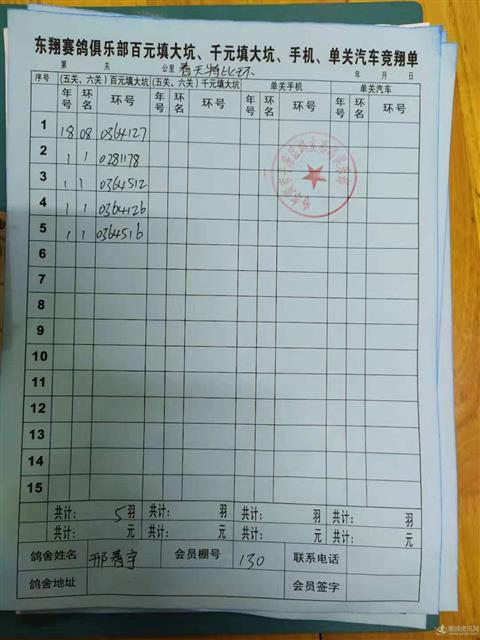 东翔赛鸽俱乐部百元填大坑、千元填大坑、手机、单关汽车竞翔单
第 关 公里 春天特比环 年 月 日
序号 (五关、六关)百元填大坑 (五关、六关)千元填大坑 单关手机 单关汽车
年号 环名 环号 年号 环名 环号 年号 环名 环号 年号 环名 环号
1 18 08 0364127
2 1 1 0281178
3 1 1 0364512
4 1 1 0364126
5 1 1 0364516
6
7
8
9
10
11
12
13
14
15
共计: 5羽 共计: 羽 共计: 羽 共计: 羽
共计: 元 共计: 元 共计: 元 共计: 元
鸽舍姓名 邢春宇 会员棚号 130 联系电话
鸽舍地址 会员签字